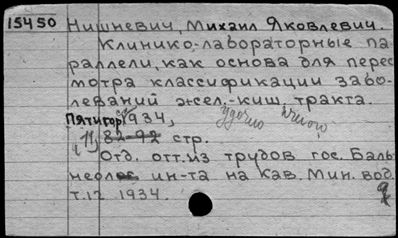 15450 Нишневич, Михаил Яковлевич.
Клинико-лабораторные па
раллели, как основа для перес
мотра классификации забо-
леваний жел.-киш. тракта.
Пятигор 1934,
11, 82-92 стр.
Отд. отт. из трудов гос. Баль
неолог ин-та на Кав. Мин. вод.
т. 12 1934.